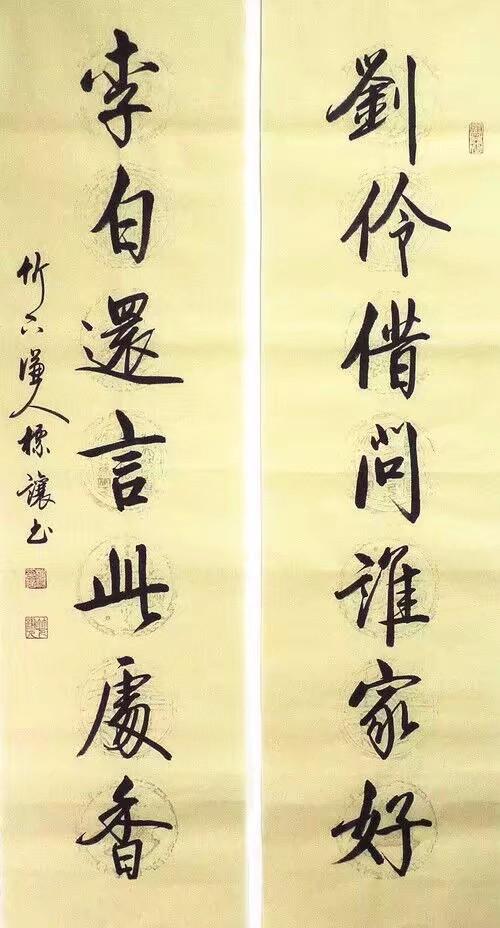 劉伶借問誰家好
李白還言此處香
竹下謙人標讓書